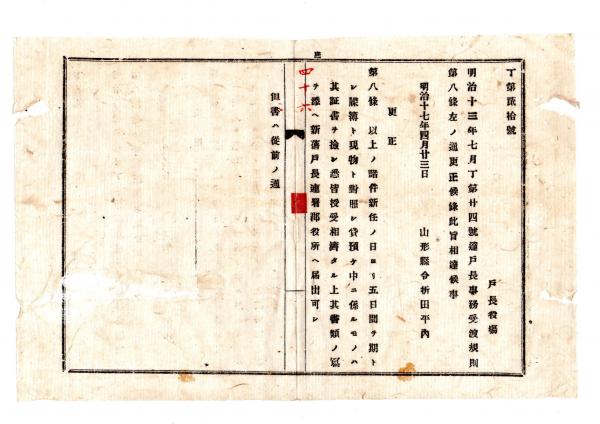 丁第貳拾號
戸長役場
明治十三年七月丁第廿四號達戸長事務受渡規則
第八條左ノ通更正候條此旨相達候事
明治十七年四月廿三日
山形縣令折田平内
更正
第八條 以上ノ諸件新任ノ日ヨリ五日間ヲ期ト
シ帳簿ト現物ト對照シ貸預ケ中ニ係ルモノハ
其証書ヲ撿シ悉皆授受相濟タル上其書類ノ寫
ヲ添ヘ新舊戸長連署郡役所ヘ届出可シ
四十六
但書ハ從前ノ通